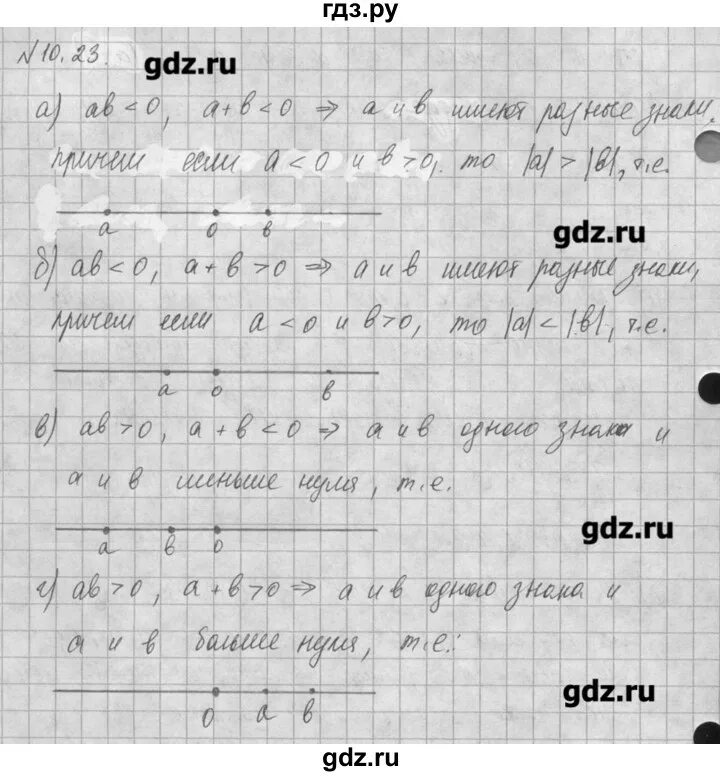 гдз.ру
№10.23.
gdz.ru
а) ab < 0, a+b < 0 ⇒ a и b имеют разные знаки,
причем если a < 0 и b > 0, то |a| > |b|, т.е.
gdz.ru
a 0 b
б) ab < 0, a+b > 0 ⇒ a и b имеют разные знаки,
причем если a < 0 и b > 0, то |a| < |b|, т.е.
a 0 b
в) ab > 0, a+b < 0 ⇒ a и b одного знака и
a и b меньше нуля, т.е.
gdz.ru
a b 0
г) ab > 0, a+b > 0 ⇒ a и b одного знака и
a и b больше нуля, т.е.:
gdz.ru
0 a b
gdz.ru